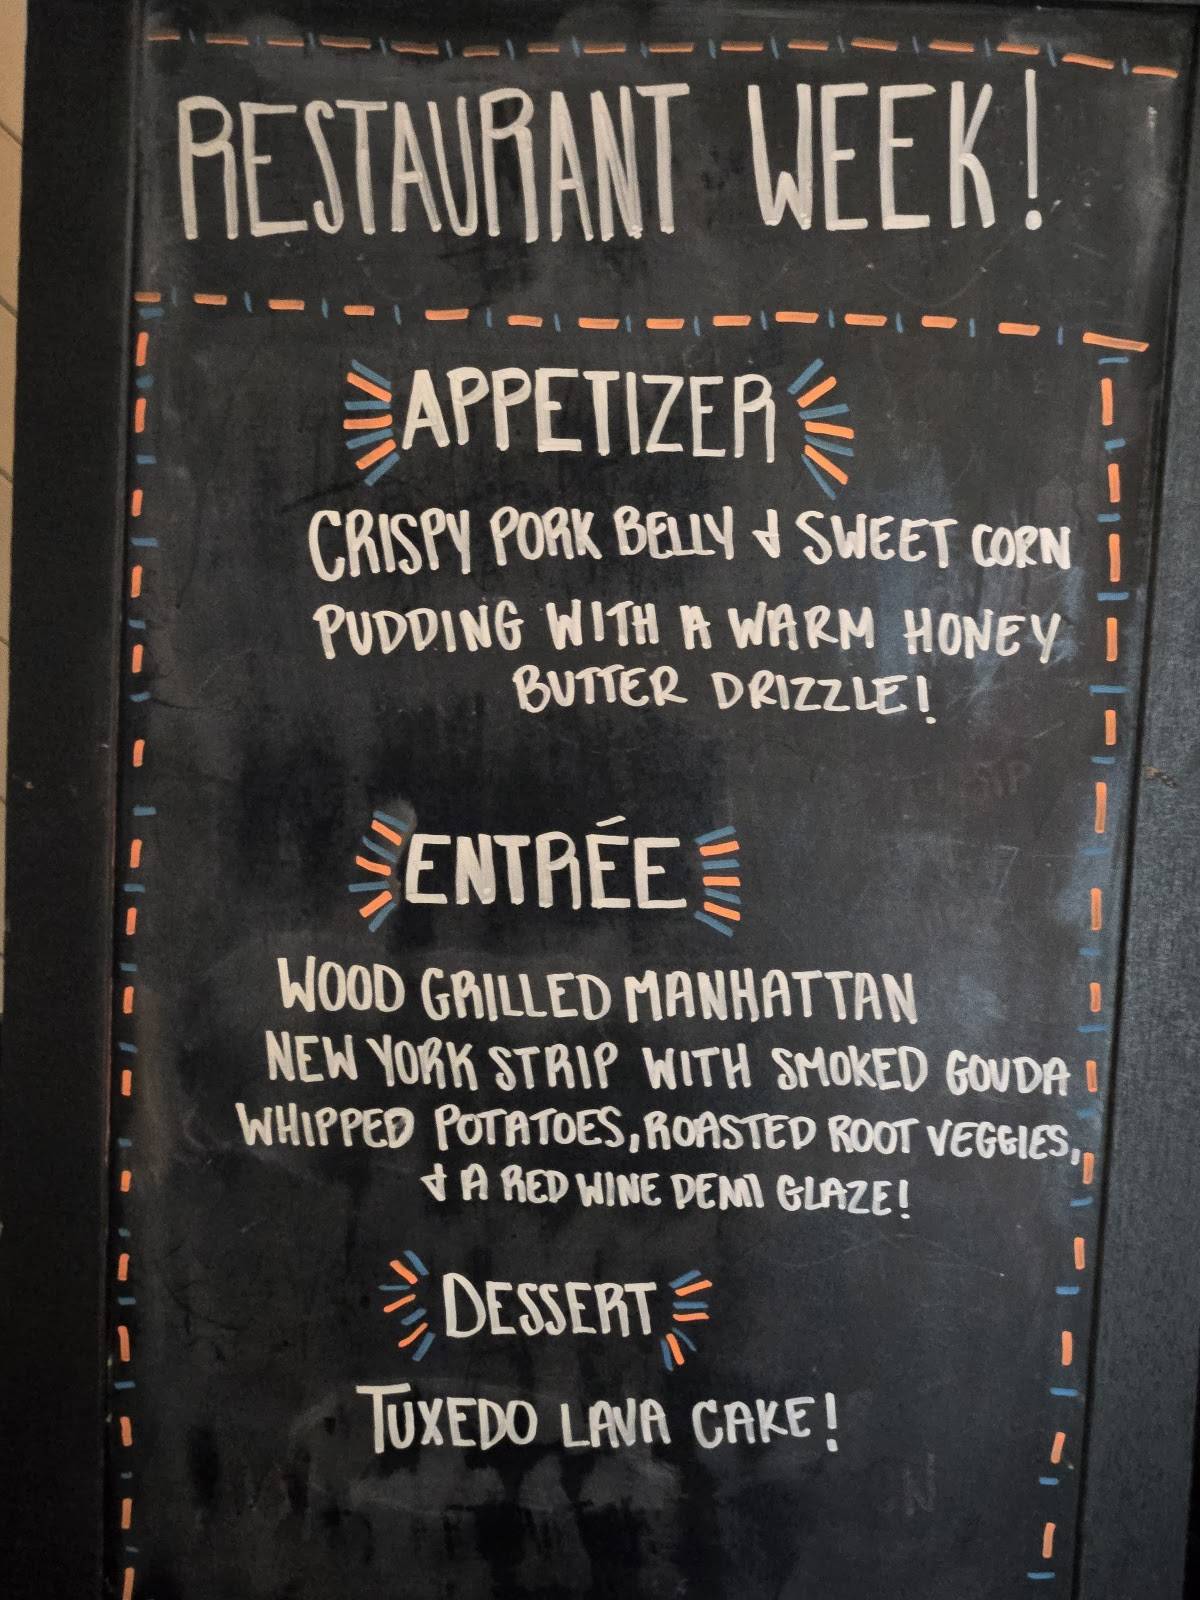 RESTAURANT WEEK!
APPETIZER
CRISPY PORK BELLY & SWEET CORN
PUDDING WITH A WARM HONEY
BUTTER DRIZZLE!
ENTRÉE
WOOD GRILLED MANHATTAN
NEW YORK STRIP WITH SMOKED GOUDA
WHIPPED POTATOES, ROASTED ROOT VEGGIES,
& A RED WINE DEMI GLAZE!
DESSERT
TUXEDO LAVA CAKE!